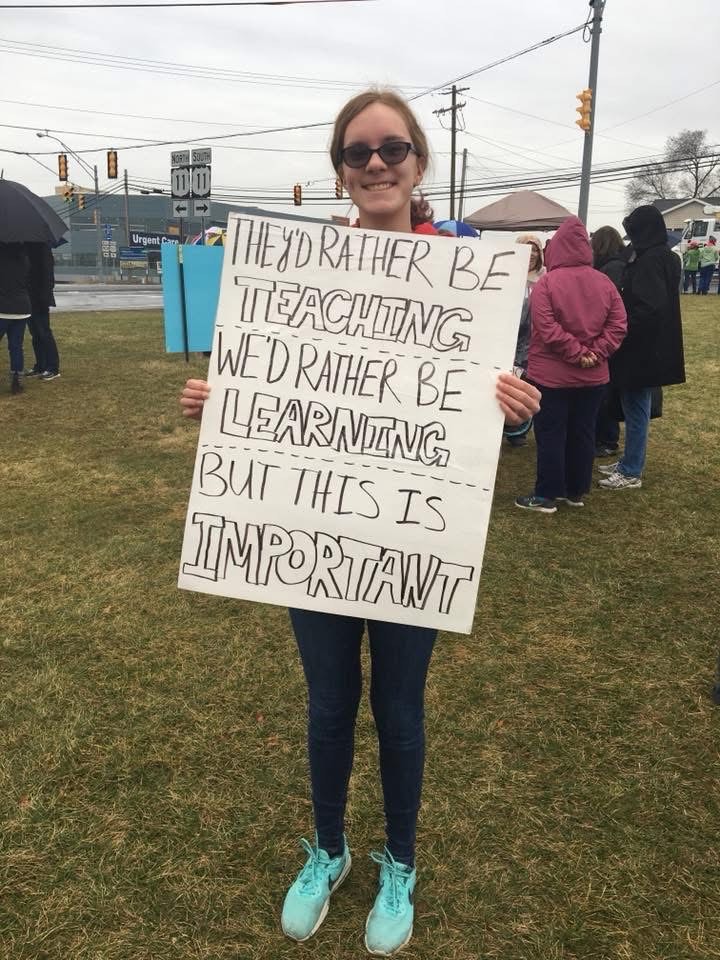 NORTH SOUTH
11 11
Urgent Care
THEY'D RATHER BE
TEACHING
WE'D RATHER BE
LEARNING
BUT THIS IS
IMPORTANT